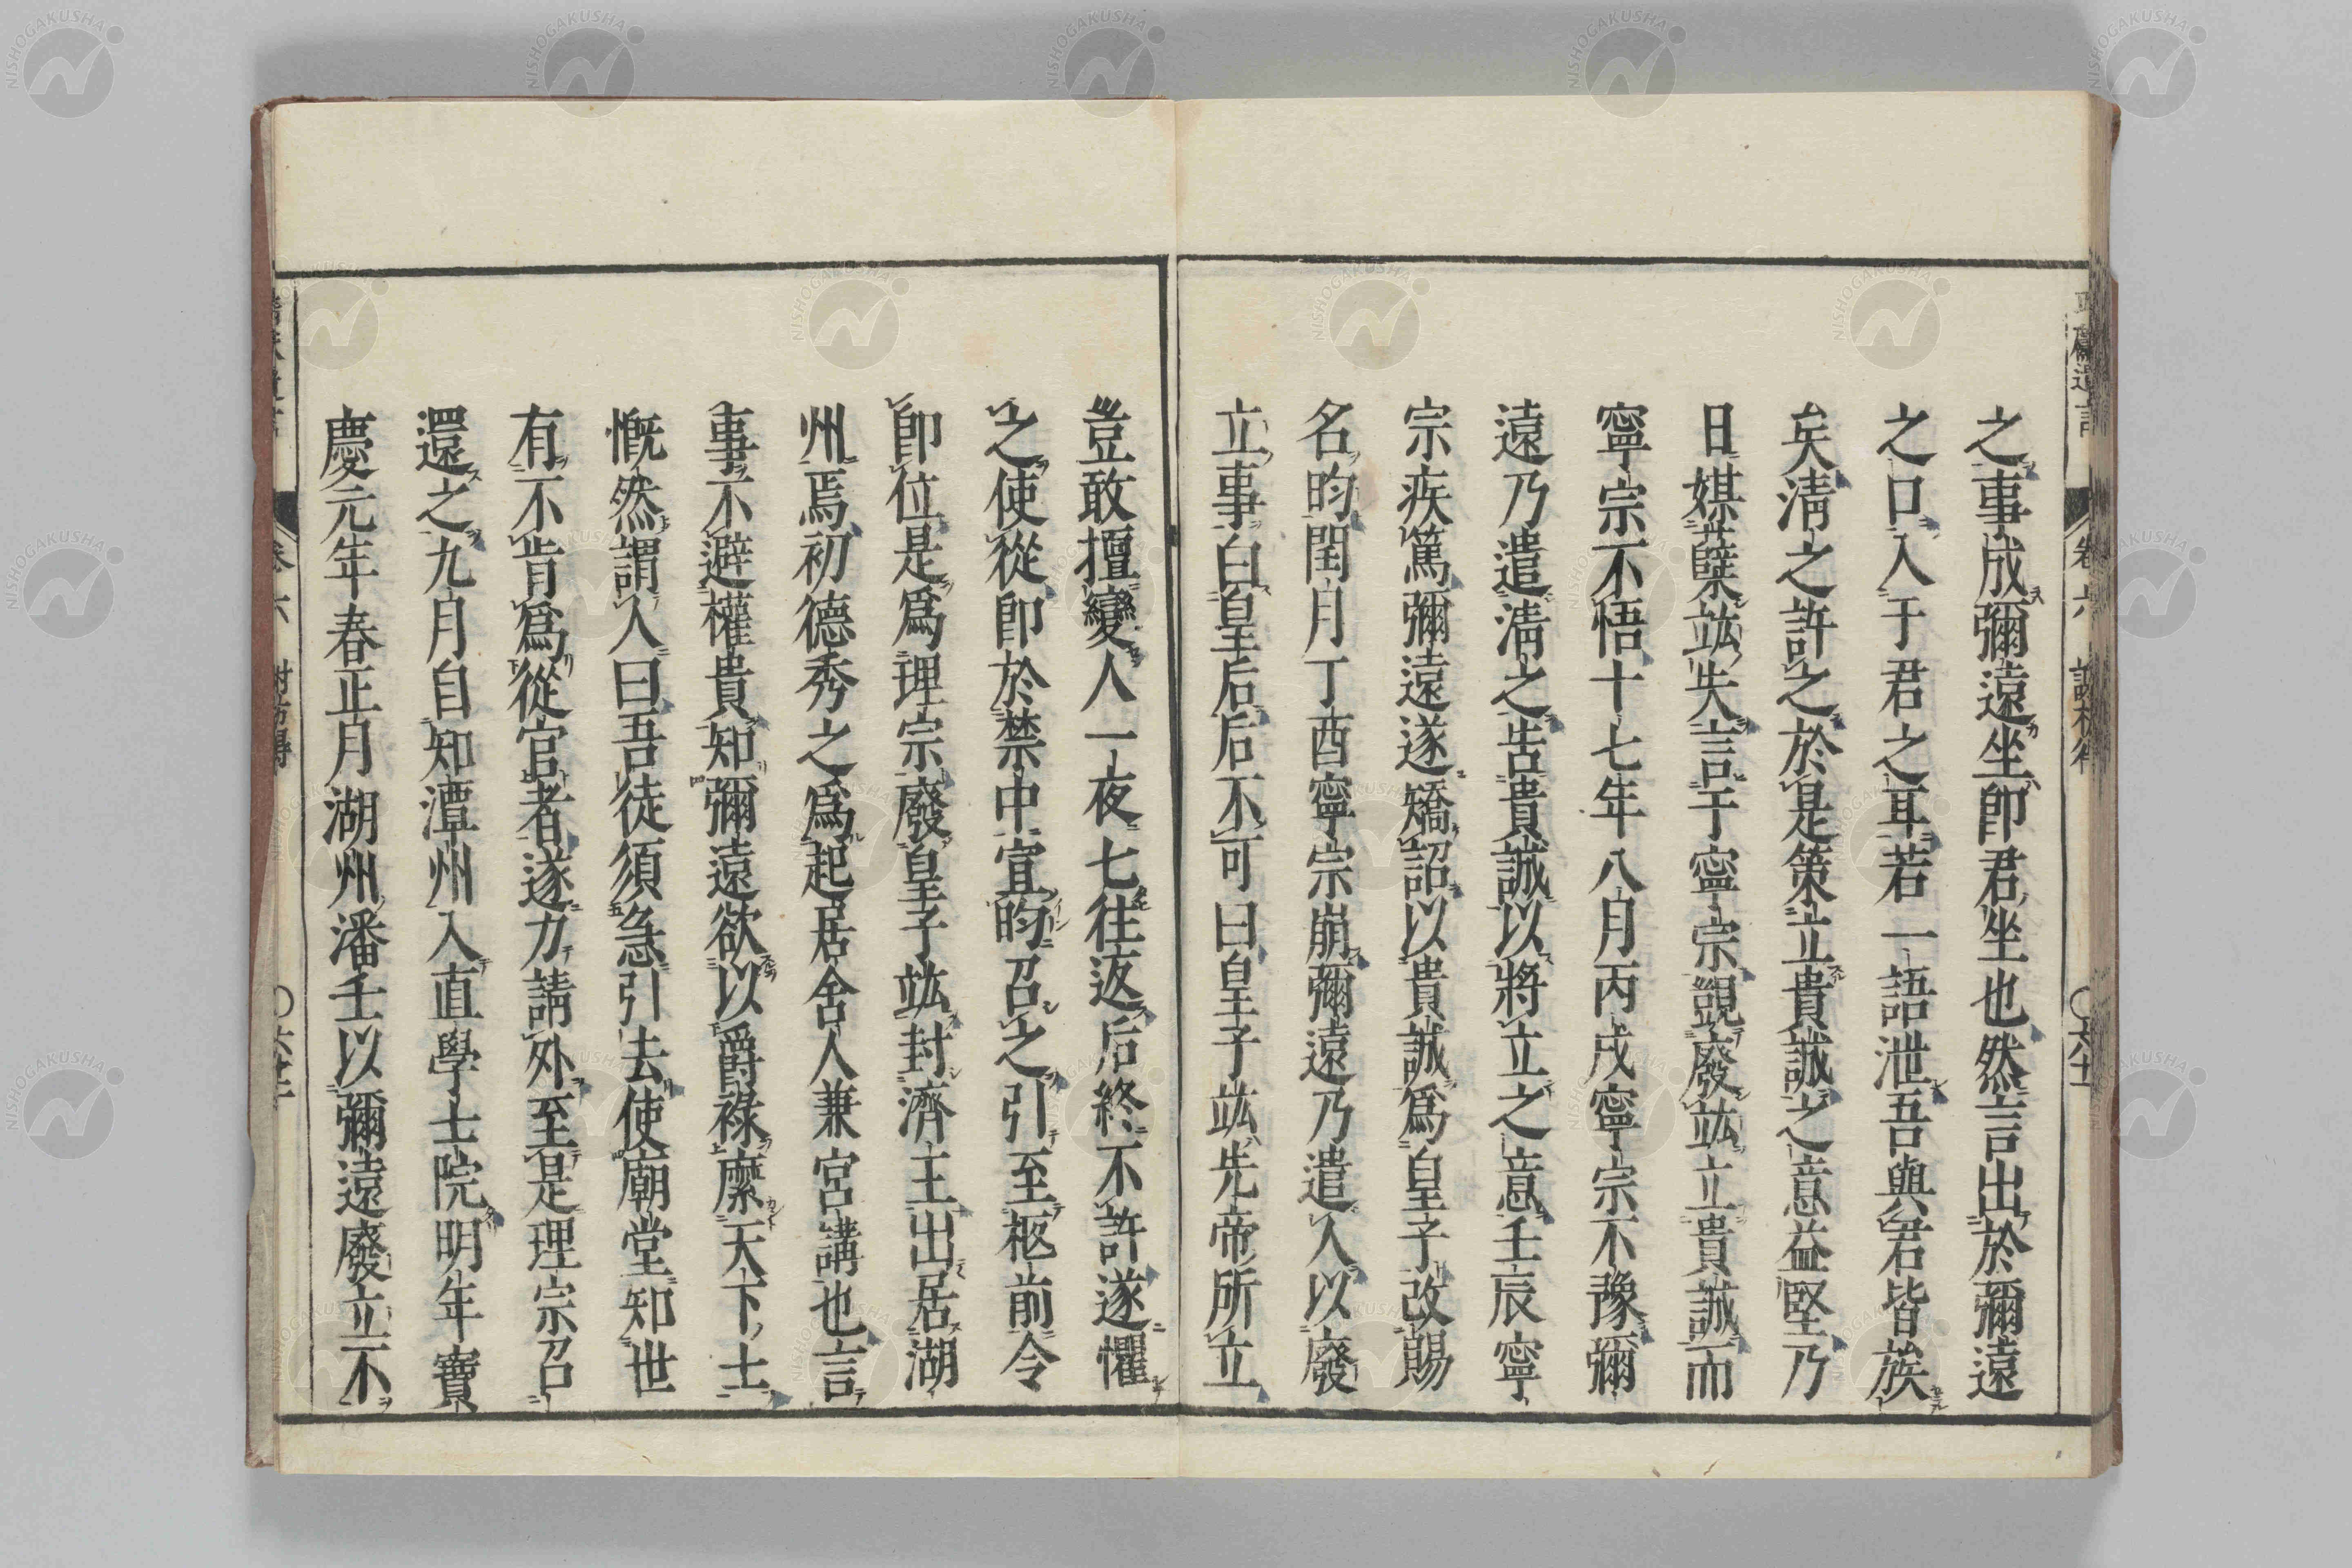 之事成彌遠坐卽君坐也然言出於彌遠
之口入于君之耳若一語泄吾與君皆族
矣淸之許之於是策立貴誠之意益堅乃
日媒蘖竑失言于寧宗覬廢竑立貴誠而
寧宗不悟十七年八月丙戌寧宗不豫彌
遠乃遣淸之告貴誠以將立之意壬辰寧
宗疾篤彌遠遂矯詔以貴誠爲皇子改賜
名昀閏月丁酉寧宗崩彌遠乃遣人以廢
立事白皇后后不可曰皇子竑先帝所立
豈敢擅變人一夜七往返后終不許遂懼
之使從卽於禁中宣昀召之引至柩前令
卽位是爲理宗廢皇子竑封濟王出居湖
州焉初德秀之爲起居舍人兼宮講也言
事不避權貴知彌遠欲以爵祿縻天下士
慨然謂人曰吾徒須急引去使廟堂知世
有不肯爲從官者遂力請外至是理宗召
還之九月自知潭州入直學士院明年寶
慶元年春正月湖州潘壬以彌遠廢立不
卷六
NISHOGAKUSHA